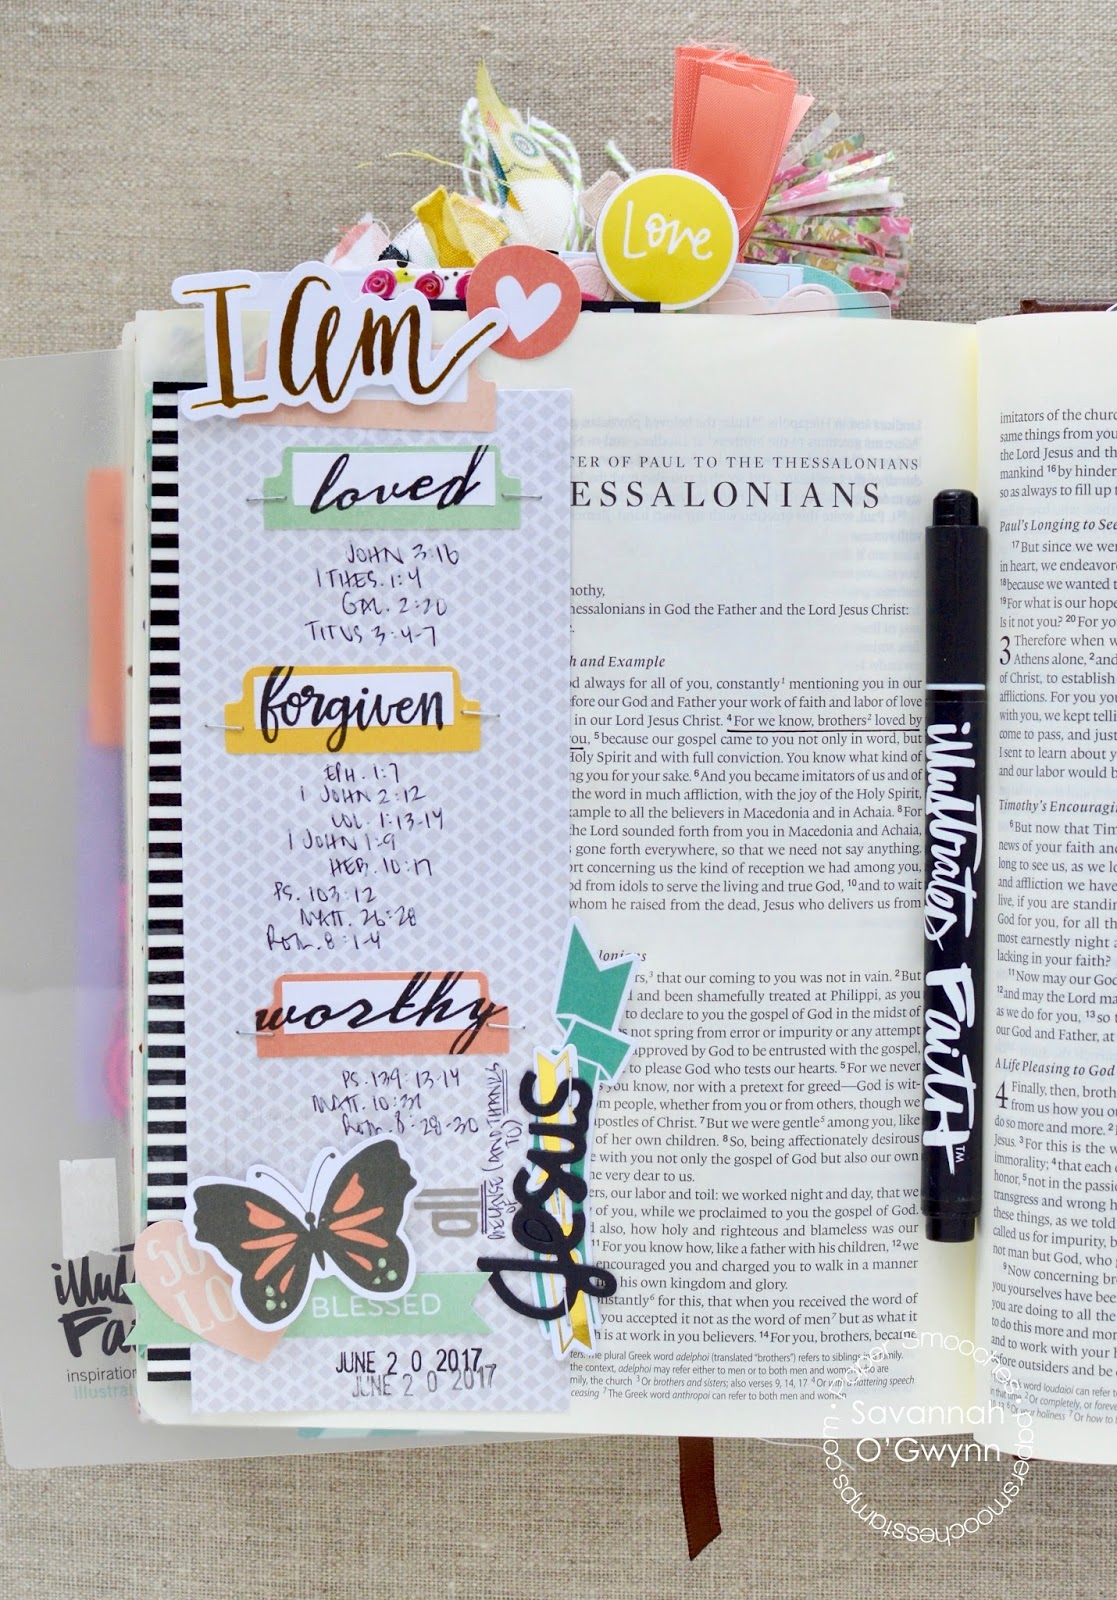 Love
I am
loved
JOHN 3:16
1 THES. 1:4
GAL. 2:20
TITUS 3:4-7
forgiven
EPH. 1:7
1 JOHN 2:12
COL. 1:13-14
1 JOHN 1:9
HEB. 10:17
PS. 103:12
MATT. 26:28
ROM. 8:1-4
worthy
PS. 139:13-14
MATT. 10:31
ROM. 8:28-30
all
BECAUSE (AND THANKS
TO)
Jesus
SO
LO
BLESSED
JUNE 20 2017
JUNE 20 2017
illust
Fai
inspiration
illustra
TER OF PAUL TO THE THESSALONIANS
ESSALONIANS
mothy,
hessalonians in God the Father and the Lord Jesus Christ:
h and Example
d always for all of you, constantly¹ mentioning you in our
fore our God and Father your work of faith and labor of love
in our Lord Jesus Christ. ⁴For we know, brothers² loved by
ou, ⁵because our gospel came to you not only in word, but
Holy Spirit and with full conviction. You know what kind of
ng you for your sake. ⁶And you became imitators of us and of
the word in much affliction, with the joy of the Holy Spirit,
xample to all the believers in Macedonia and in Achaia. ⁸For
the Lord sounded forth from you in Macedonia and Achaia,
s gone forth everywhere, so that we need not say anything.
ort concerning us the kind of reception we had among you,
od from idols to serve the living and true God, ¹⁰and to wait
whom he raised from the dead, Jesus who delivers us from
lonians
rs,³ that our coming to you was not in vain. ²But
d and been shamefully treated at Philippi, as you
to declare to you the gospel of God in the midst of
s not spring from error or impurity or any attempt
approved by God to be entrusted with the gospel,
to please God who tests our hearts. ⁵For we never
s you know, nor with a pretext for greed—God is wit-
m people, whether from you or from others, though we
postles of Christ. ⁷But we were gentle⁵ among you, like
of her own children. ⁸So, being affectionately desirous
e with you not only the gospel of God but also our own
me very dear to us.
ers, our labor and toil: we worked night and day, that we
of you, while we proclaimed to you the gospel of God.
also, how holy and righteous and blameless was our
¹¹For you know how, like a father with his children, ¹²we
encouraged you and charged you to walk in a manner
his own kingdom and glory.
nstantly⁶ for this, that when you received the word of
you accepted it not as the word of men⁷ but as what it
h is at work in you believers. ¹⁴For you, brothers, became
ters. The plural Greek word adelphoi (translated "brothers") refers to siblings in a family.
the context, adelphoi may refer either to men or to both men and women
mily, the church ³Or brothers and sisters; also verses 9, 14, 17 ⁴Or with a flattering speech
⁷The Greek word anthropoi can refer to both men and women
illustrated FAITH™
imitators of the churc
same things from you
the Lord Jesus and th
mankind ¹⁶by hinder
so as always to fill up t
Paul's Longing to See
¹⁷But since we wer
in heart, we endeavore
¹⁸because we wanted t
¹⁹For what is our hope
Is it not you? ²⁰For yo
3 Therefore when w
Athens alone, ²and
of Christ, to establish
afflictions. For you yo
with you, we kept tellin
come to pass, and just
I sent to learn about y
and our labor would b
Timothy's Encouragin
⁶But now that Tim
news of your faith and
long to see us, as we lo
and affliction we have
live, if you are standing
God for you, for all th
most earnestly night a
lacking in your faith?
¹¹Now may our God
¹²and may the Lord m
as we do for you, ¹³so t
our God and Father, at
A Life Pleasing to God
4 Finally, then, broth
from us how you o
do so more and more. ²
Jesus. ³For this is the w
immorality; ⁴that each o
honor, ⁵not in the passio
transgress and wrong h
these things, as we told
called us for impurity, b
not man but God, who g
⁹Now concerning br
you yourselves have bee
you are doing to all the
to do this more and mor
and to work with your h
fore outsiders and be
Savannah
O'Gwynn
papersmoochesstamps.com